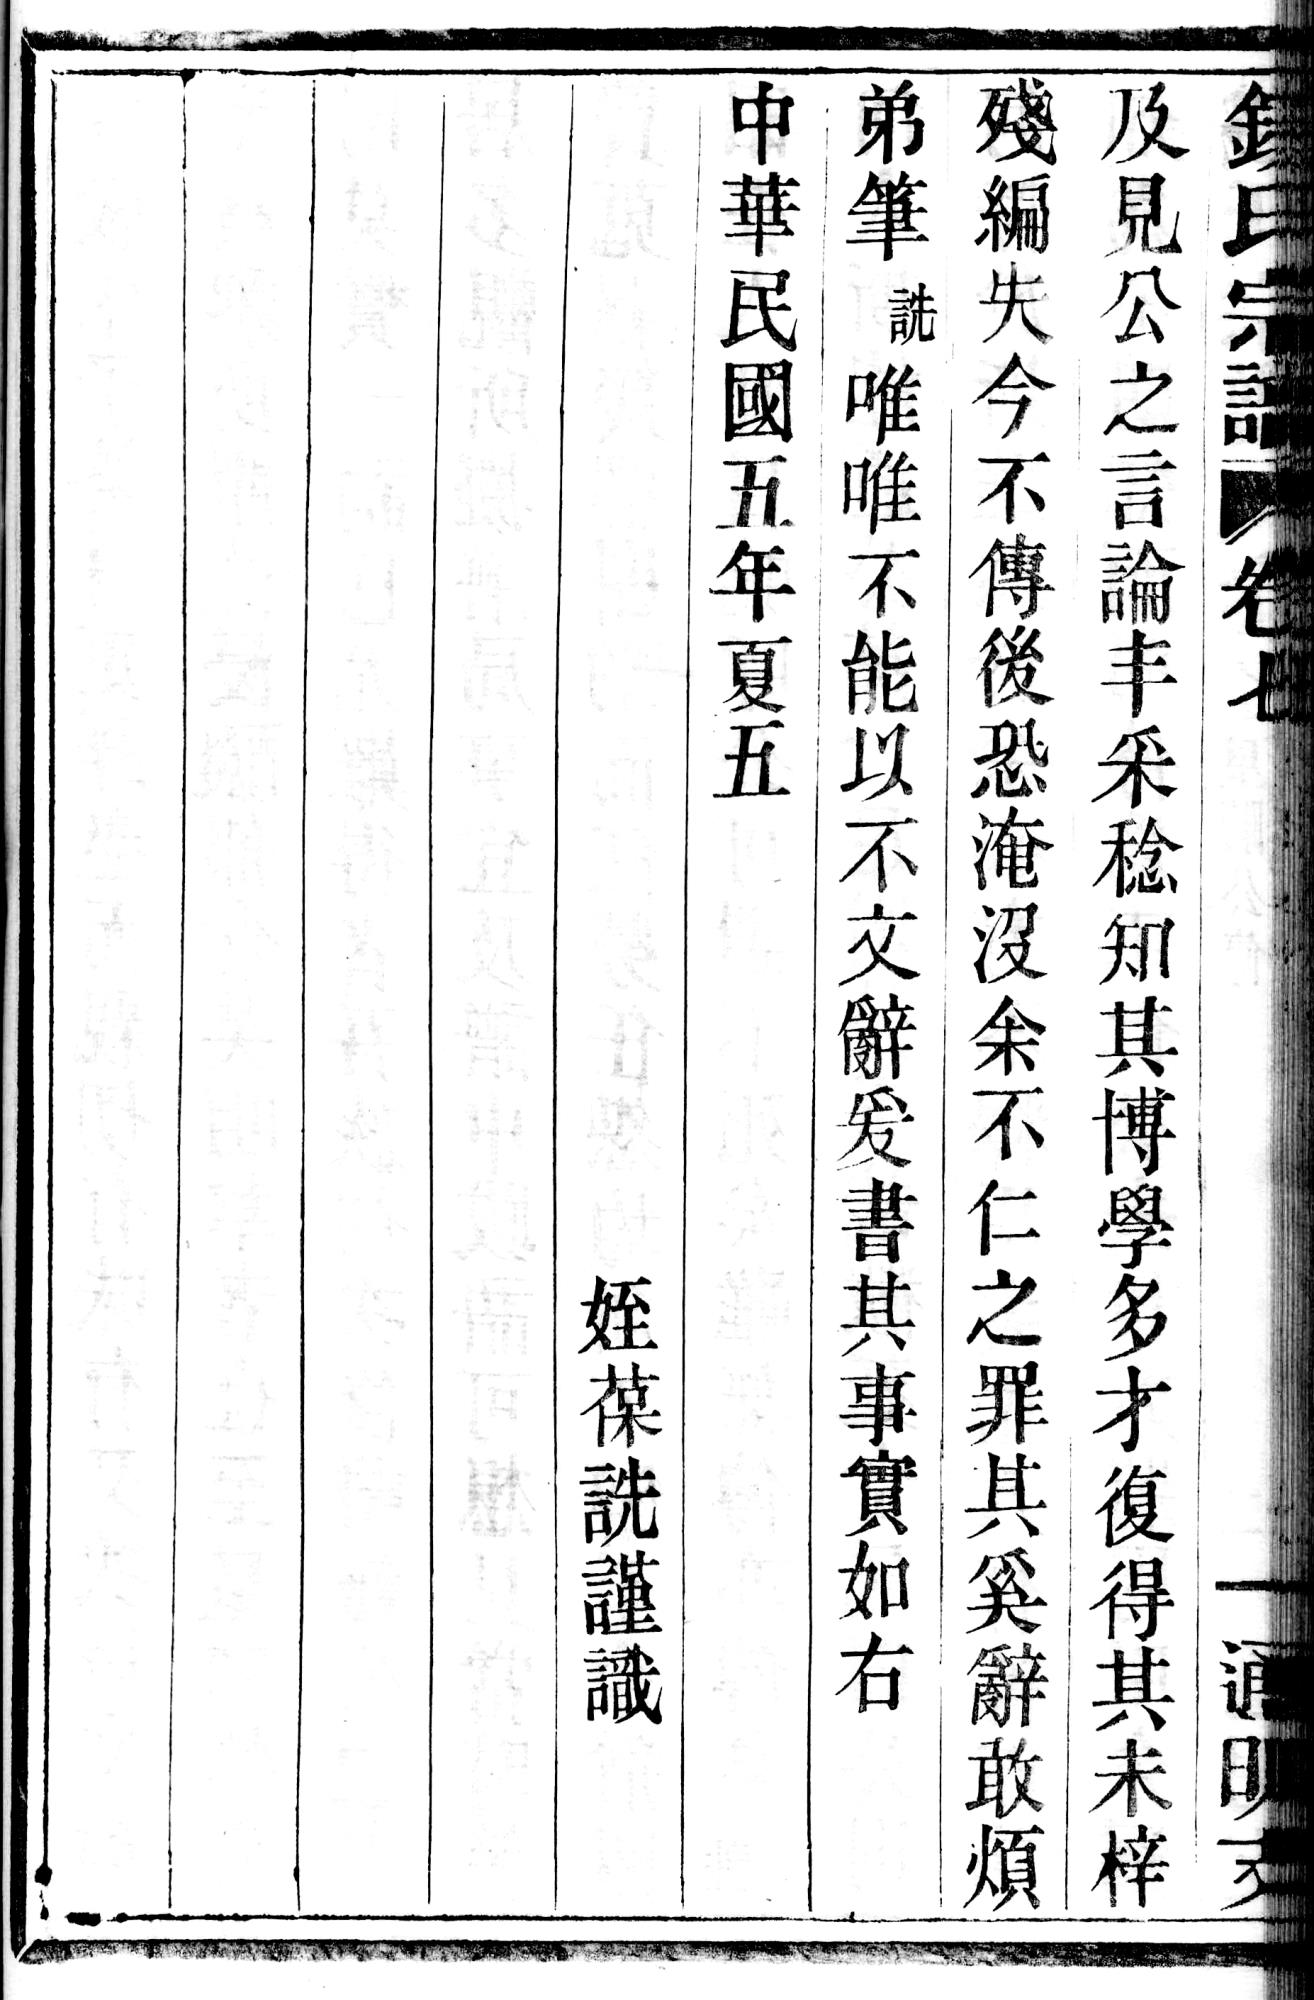 錢氏宗譜 卷七 一 通明支
及見公之言論丰采稔知其博學多才復得其未梓
殘編失今不傳後恐淹沒余不仁之罪其奚辭敢煩
弟筆詵唯唯不能以不文辭爰書其事實如右
中華民國五年夏五
姪葆詵謹識